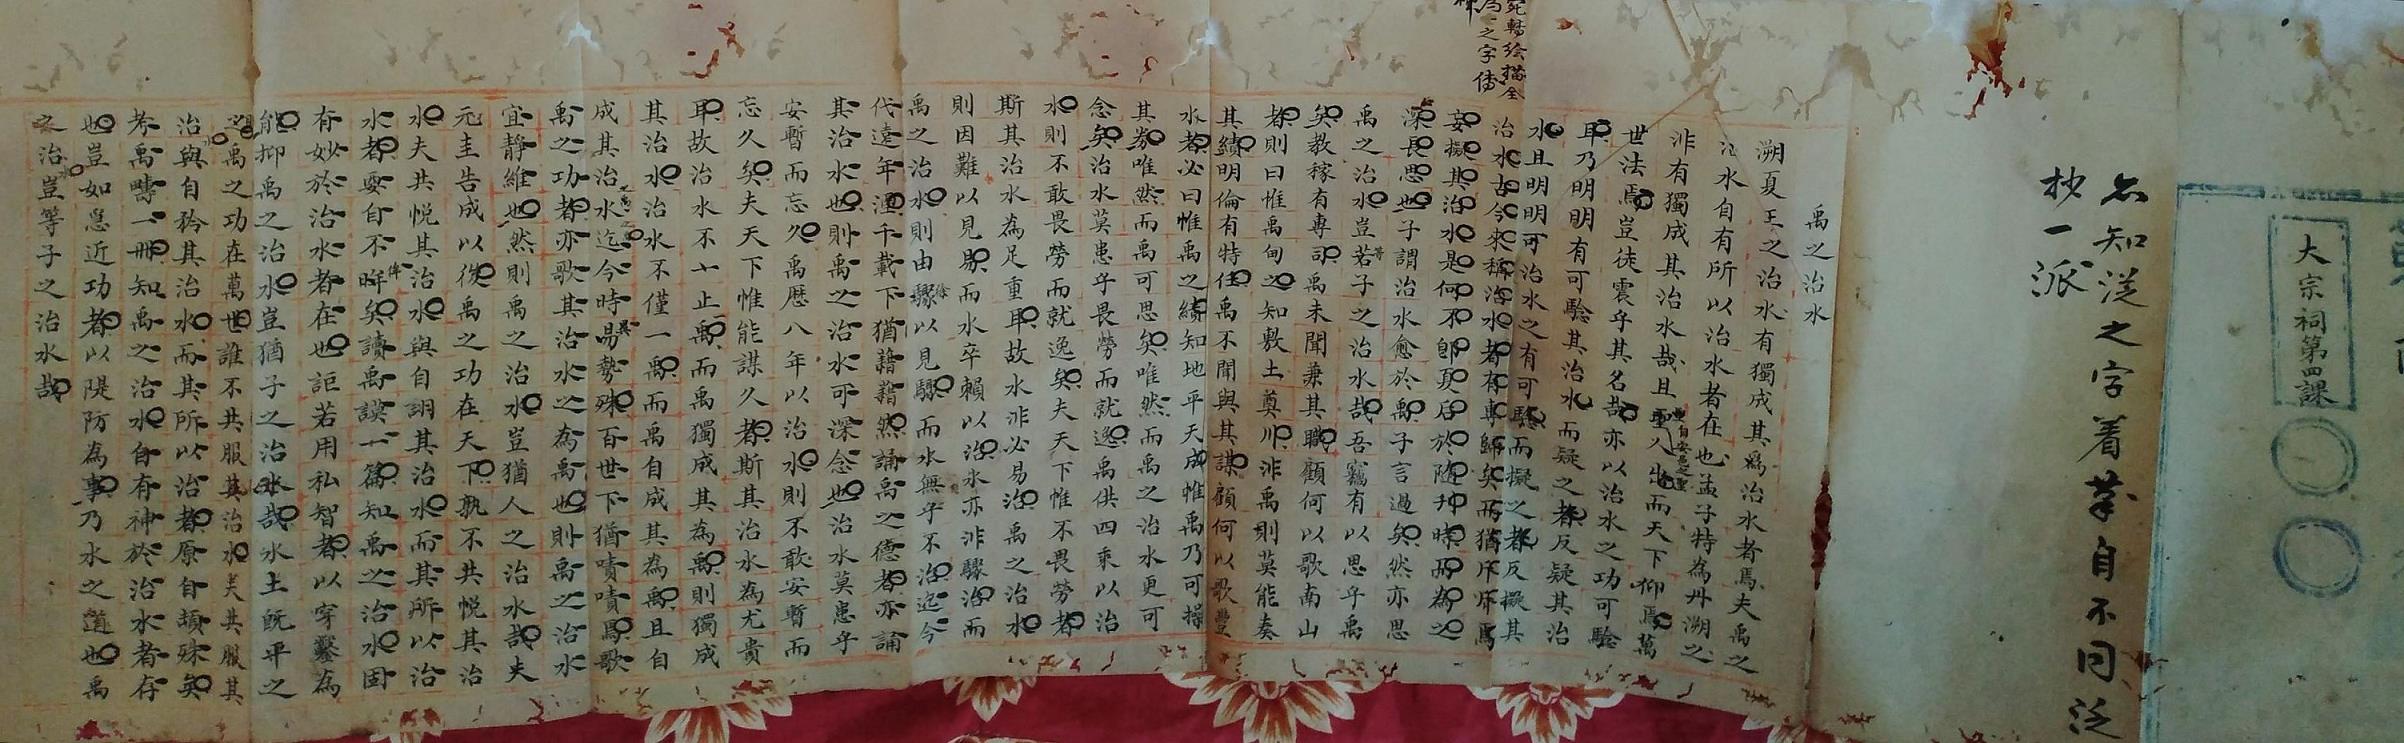 大宗祠第四課
知從之字着筆自不同泛
抄一派
宛轉繪描全
為之字傳
神
禹之治水
溯夏王之治水有獨成其為治水者焉夫禹之
治水自有所以治水者在也孟子特為丹溯之
非有獨成其治水哉且聖人出而天下仰焉萬
世法焉豈徒震乎其名哉亦以治水之功可驗
耳乃明明有可驗其治水而疑之者反疑其治
水且明明可治水之有可驗而擬之者反擬其
治水古今來稱治水者有專歸矣而猶斤斤焉
妄擬其治水是何不即夏后於隨刊時而為之
深長思也子謂治水愈於禹子言過矣然亦思
禹之治水豈若子之治水哉吾竊有以思乎禹
矣教稼有專司禹未聞兼其職顧何以歌南山
者則曰惟禹甸之知敷土奠川非禹則莫能奏
其績明倫有特任禹不聞與其謀顧何以歌豐
水者必曰惟禹之績知地平天成惟禹乃可操
其券唯然而禹可思矣唯然而禹之治水更可
念矣治水莫患乎畏勞而就逸禹供四乘以治
水則不敢畏勞而就逸矣夫天下惟不畏勞者
斯其治水為足重耳故水非必易治禹之治水
則因難以見易而水卒賴以治水亦非驟治而
禹之治水則由驟以見驟而水無乎不治迄今
代遠年湮千載下猶藉藉然誦禹之德者亦誦
其治水也則禹之治水可深念也治水莫患乎
安暫而忘久禹歷八年以治水則不敢安暫而
忘久矣夫天下惟能謀久者斯其治水為尤貴
耳故治水不止禹而禹獨成其為禹則獨成
其治水治水不僅一禹而禹自成其為禹且自
成其治水迄今時易勢殊百世下猶嘖嘖焉歌
禹之功者亦歌其治水之為禹也則禹之治水
宜靜維也然則禹之治水豈猶人之治水哉夫
元圭告成以後禹之功在天下孰不共悅其治
水夫共悅其治水與自詡其治水而其所以治
水者要自不侔矣讀禹謨一篇知禹之治水固
有妙於治水者在也詎若用私智者以穿鑿為
能抑禹之治水豈猶子之治水哉水土既平之
禹之功在萬世誰不共服其治水夫共服其
治與自矜其治水而其所以治者原自頡殊矣
考禹疇一冊知禹之治水自有神於治水者存
也豈如急近功者以隄防為事乃水之道也禹
之治水豈等子之治水哉